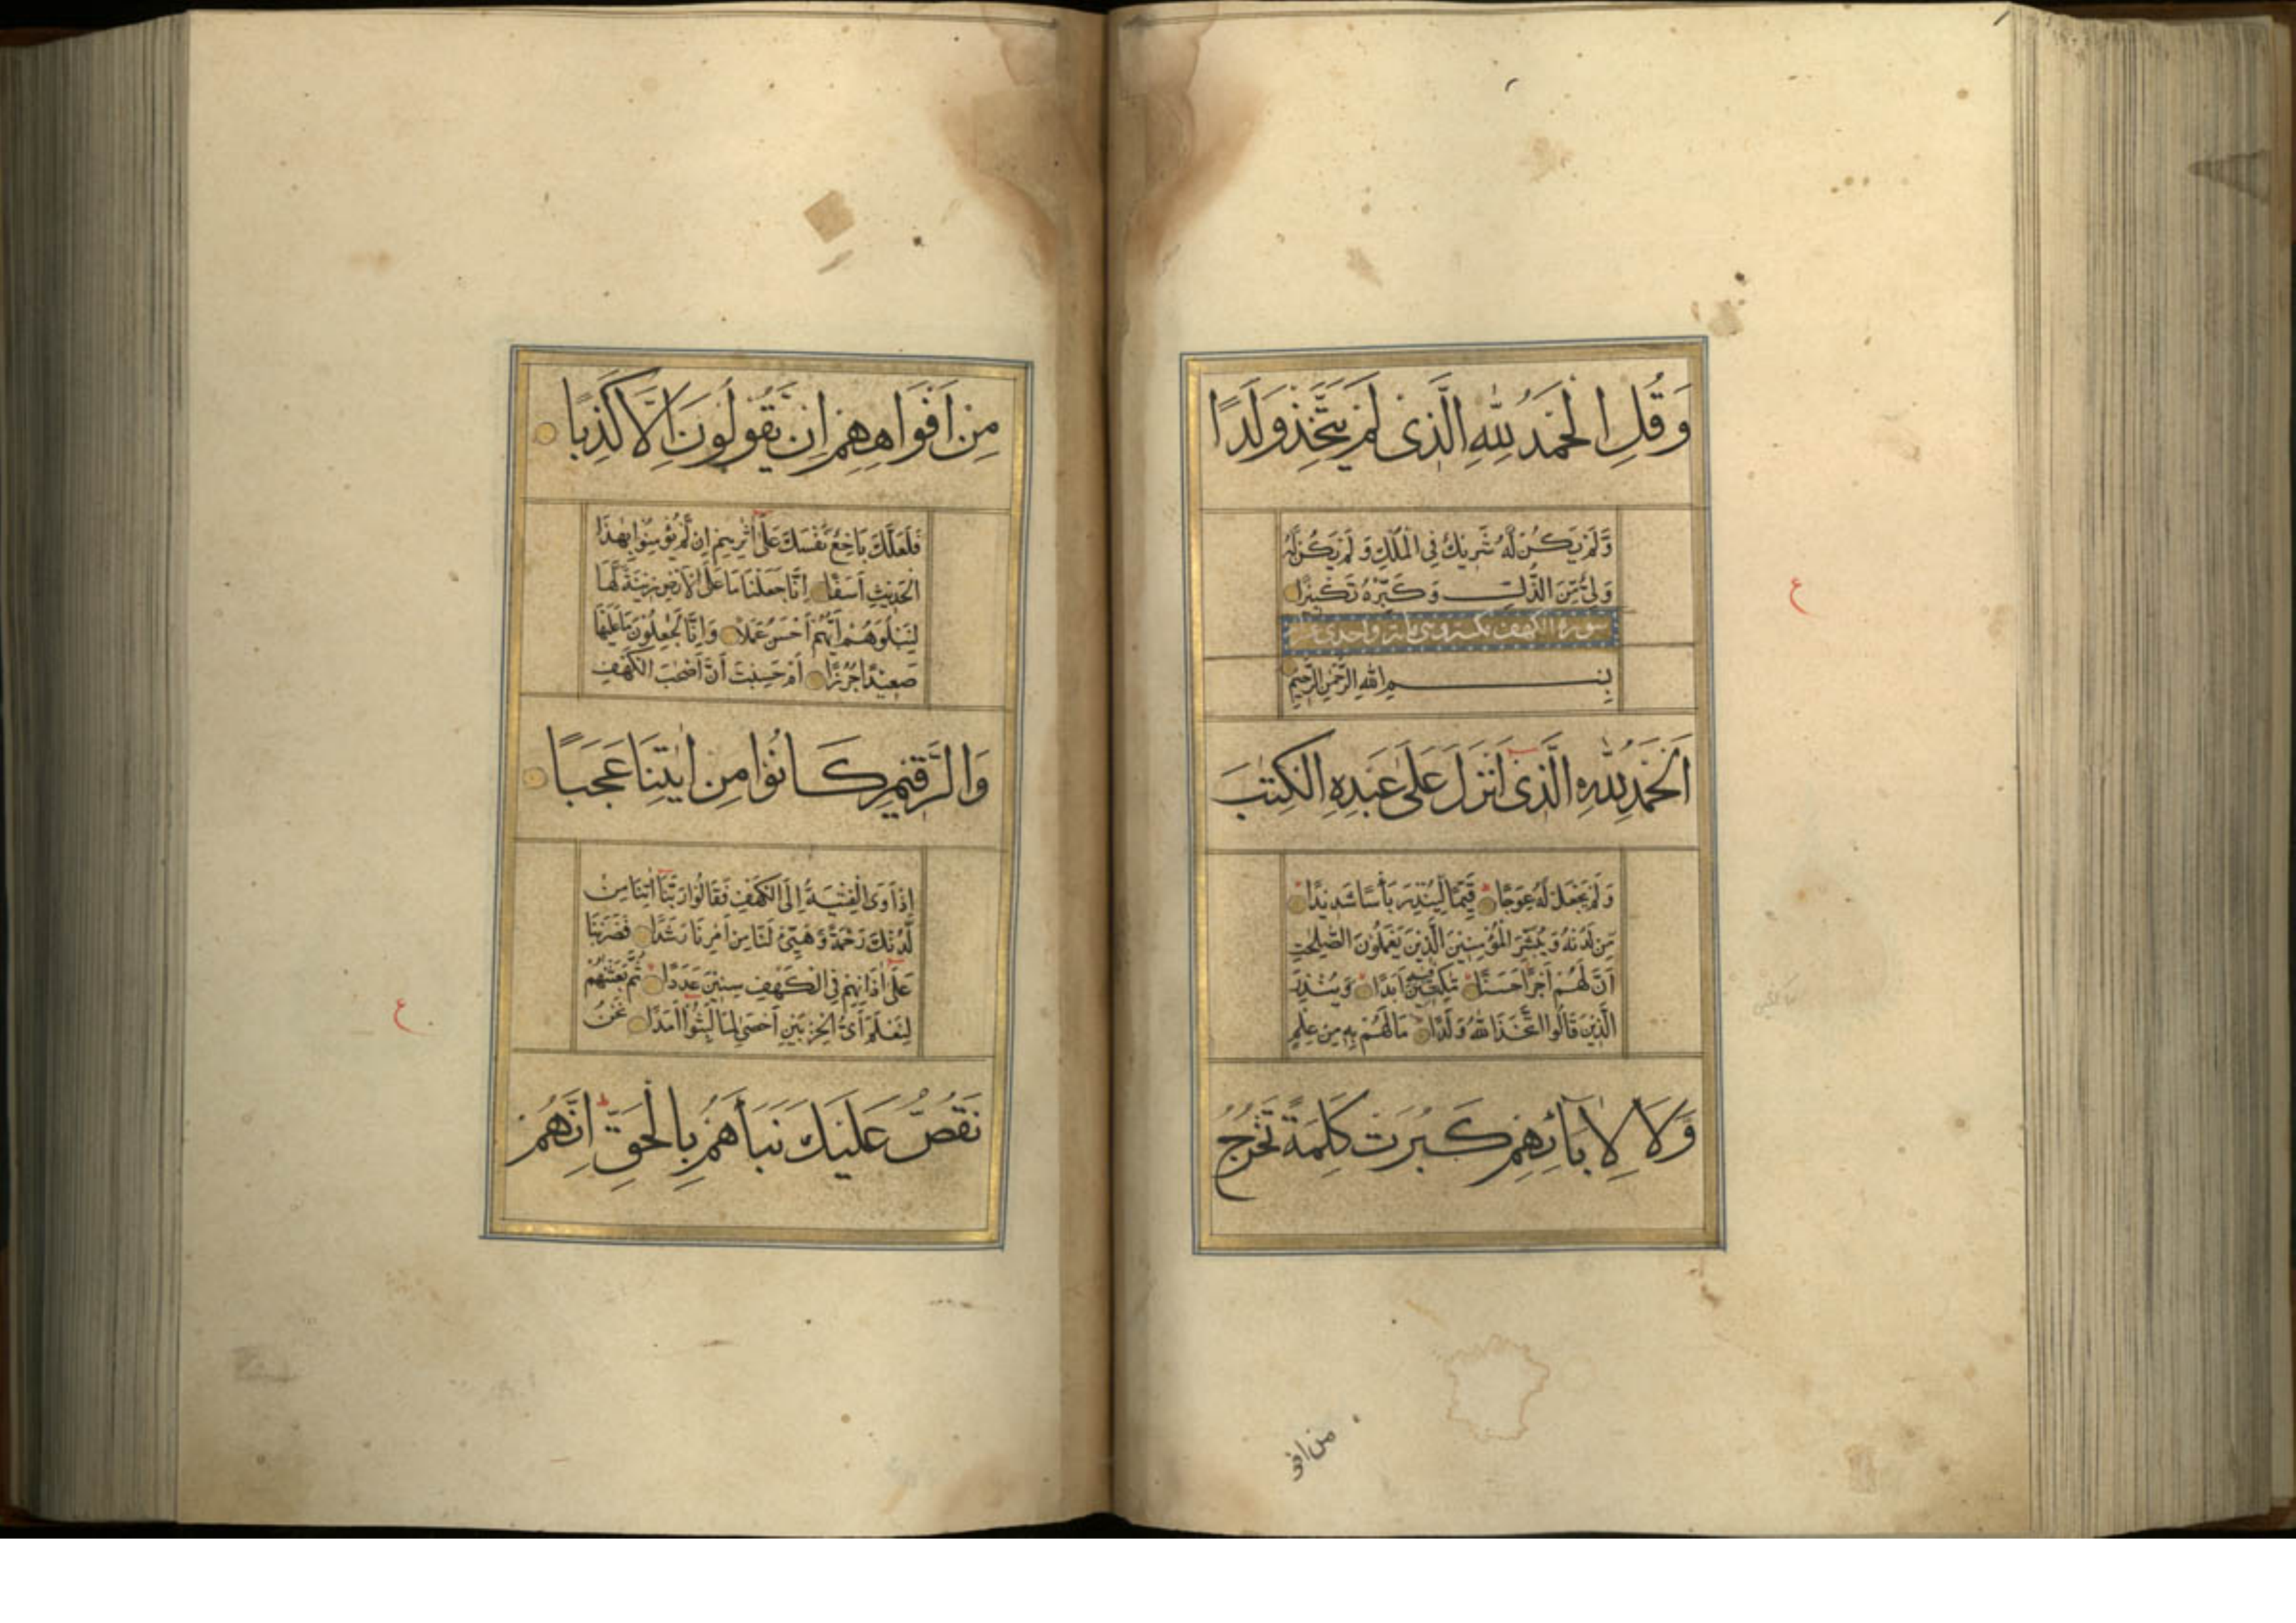 وَقُلِ الْحَمْدُ لِلّٰهِ الَّذِي لَمْ يَتَّخِذْ وَلَدًا
وَّلَمْ يَكُنْ لَهُ شَرِيْكٌ فِي الْمُلْكِ وَلَمْ يَكُنْ لَهُ
وَلِيٌّ مِّنَ الذُّلِّ وَكَبِّرْهُ تَكْبِيْرًا
سورة الكهف
بِسْمِ اللهِ الرَّحْمٰنِ الرَّحِيْمِ
اَلْحَمْدُ لِلّٰهِ الَّذِي اَنْزَلَ عَلٰى عَبْدِهِ الْكِتٰبَ
وَلَمْ يَجْعَلْ لَهُ عِوَجًا قَيِّمًا لِيُنْذِرَ بَأْسًا شَدِيْدًا
مِّنْ لَدُنْهُ وَيُبَشِّرَ الْمُؤْمِنِيْنَ الَّذِيْنَ يَعْمَلُوْنَ الصّٰلِحٰتِ
اَنَّ لَهُمْ اَجْرًا حَسَنًا مّٰكِثِيْنَ فِيْهِ اَبَدًا وَيُنْذِرَ
الَّذِيْنَ قَالُوا اتَّخَذَ اللهُ وَلَدًا مَا لَهُمْ بِهِ مِنْ عِلْمٍ
وَّلَا لِاٰبَآئِهِمْ كَبُرَتْ كَلِمَةً تَخْرُجُ
من افو
ع
مِنْ اَفْوَاهِهِمْ اِنْ يَّقُوْلُوْنَ اِلَّا كَذِبًا
فَلَعَلَّكَ بَاخِعٌ نَّفْسَكَ عَلٰى اٰثَارِهِمْ اِنْ لَّمْ يُؤْمِنُوْا بِهٰذَا
الْحَدِيْثِ اَسَفًا اِنَّا جَعَلْنَا مَا عَلَى الْاَرْضِ زِيْنَةً لَّهَا
لِنَبْلُوَهُمْ اَيُّهُمْ اَحْسَنُ عَمَلًا وَاِنَّا لَجٰعِلُوْنَ مَا عَلَيْهَا
صَعِيْدًا جُرُزًا اَمْ حَسِبْتَ اَنَّ اَصْحٰبَ الْكَهْفِ
وَالرَّقِيْمِ كَانُوْا مِنْ اٰيٰتِنَا عَجَبًا
اِذْ اَوَى الْفِتْيَةُ اِلَى الْكَهْفِ فَقَالُوْا رَبَّنَا اٰتِنَا مِنْ
لَّدُنْكَ رَحْمَةً وَّهَيِّئْ لَنَا مِنْ اَمْرِنَا رَشَدًا فَضَرَبْنَا
عَلٰى اٰذَانِهِمْ فِي الْكَهْفِ سِنِيْنَ عَدَدًا ثُمَّ بَعَثْنٰهُمْ
لِنَعْلَمَ اَيُّ الْحِزْبَيْنِ اَحْصٰى لِمَا لَبِثُوْا اَمَدًا نَحْنُ
نَقُصُّ عَلَيْكَ نَبَأَهُمْ بِالْحَقِّ اِنَّهُمْ
ع